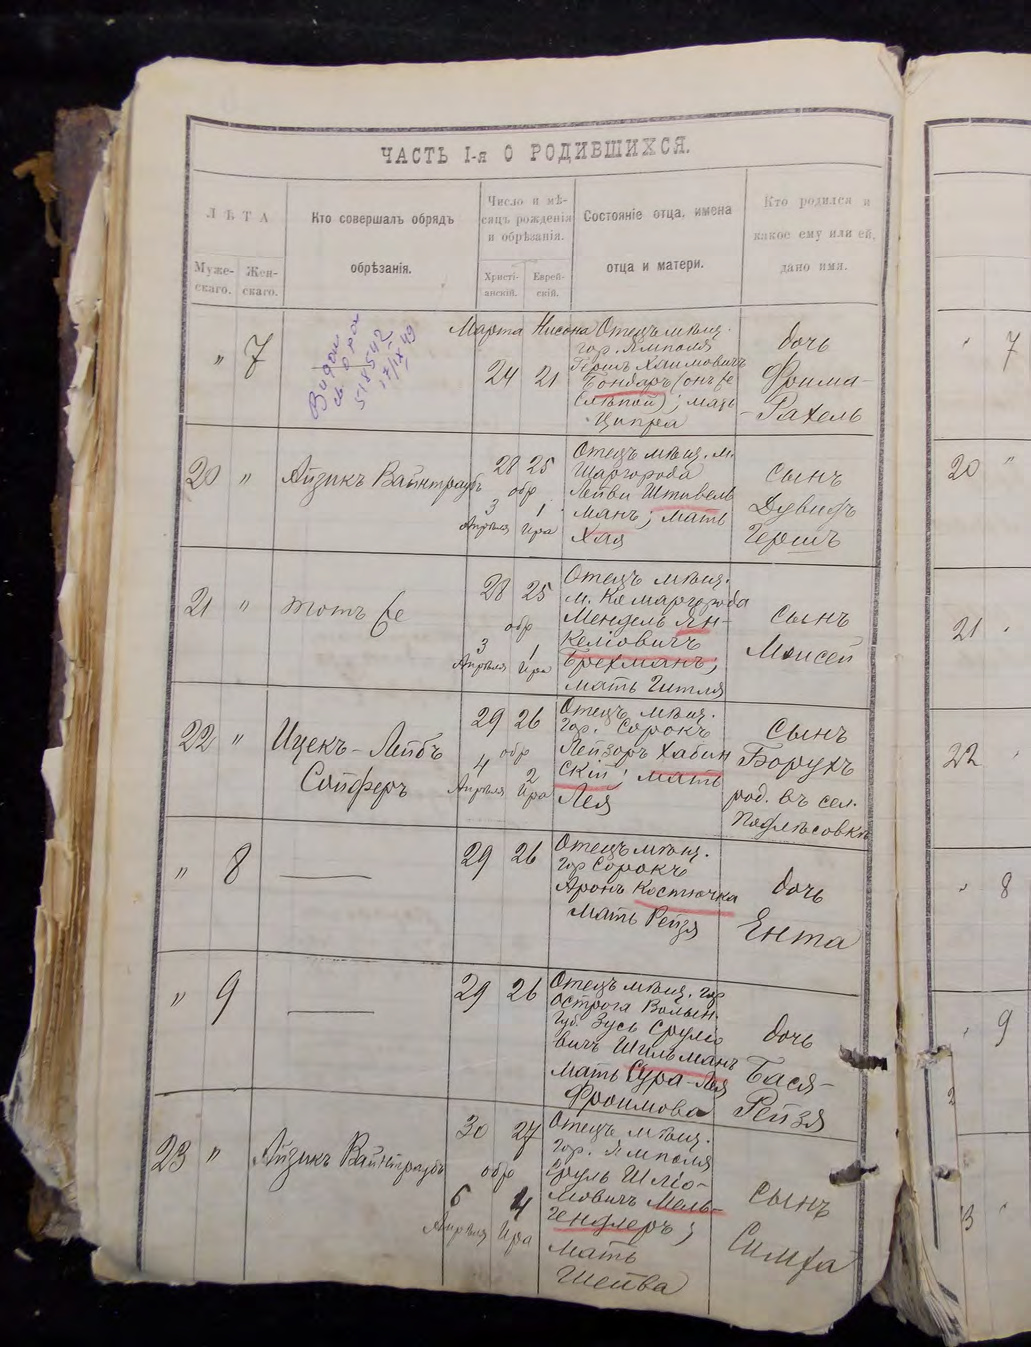 ЧАСТЬ I-я О РОДИВШИХСЯ.
ЛѢТА
Муже-
скаго.
Жен-
скаго.
Кто совершалъ обрядъ
обрѣзанія.
Число и мѣ-
сяцъ рожденія
и обрѣзанія.
Христі-
анскій.
Еврей-
скій.
Состояніе отца, имена
отца и матери.
Кто родился и
какое ему или ей,
дано имя.
" 7
518542
17/IX 49
Марта Нисона
24 21
Отецъ мѣщ.
гор. Ямполя
Гершъ Хаимовичъ
Бондаръ (онъ же
); мать
Ципра
дочь
Фрима-
-Рахель
20 "
Айзикъ Вайнтраубъ
28 25
обр
3 1
Апрѣля Ира
Отецъ мѣщ. м.
Шаргорода
Лейви Штивель
манъ; мать
Хая
сынъ
Дувидъ
Гершъ
21 "
тотъ же
28 25
обр
3 1
Апрѣля Ира
Отецъ мѣщ.
м. Комаргорода
Мендель Ян-
келіовичъ
Брехманъ;
мать Гитля
сынъ
Моисей
22 "
Ицекъ-Лейбъ
Сойферъ
29 26
обр
4 2
Апрѣля Ира
Отецъ мѣщ.
гор. Сорокъ
Лейзоръ Хабин
скій; мать
Лея
сынъ
Борухъ
род. въ сел.
" 8
29 26
Отецъ мѣщ.
гор Сорокъ
Аронъ Костючка
Мать Рейзя
дочь
Ента
" 9
29 26
Отецъ мѣщ. гор
Острога Волын.
губ. Зусь Сруліо
вичъ Шильманъ
мать Сура-Лея
Фроимова
дочь
Бася-
Рейзя
23 "
Айзикъ Вайнтраубъ
30 27
обр
6 4
Апрѣля Ира
Отецъ мѣщ.
гор. Ямполя
Сруль Шліо-
мовичъ Мель-
гендлеръ;
мать
Шейва
сынъ
Симха
7
20 "
21
22
8
9